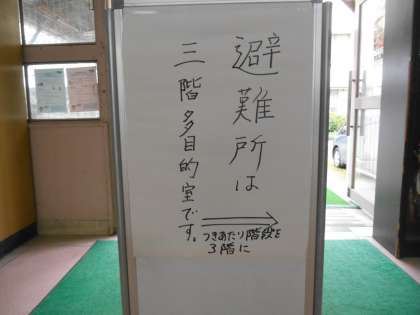 避難所は
三階多目的室です。
つきあたり階段を
3階に